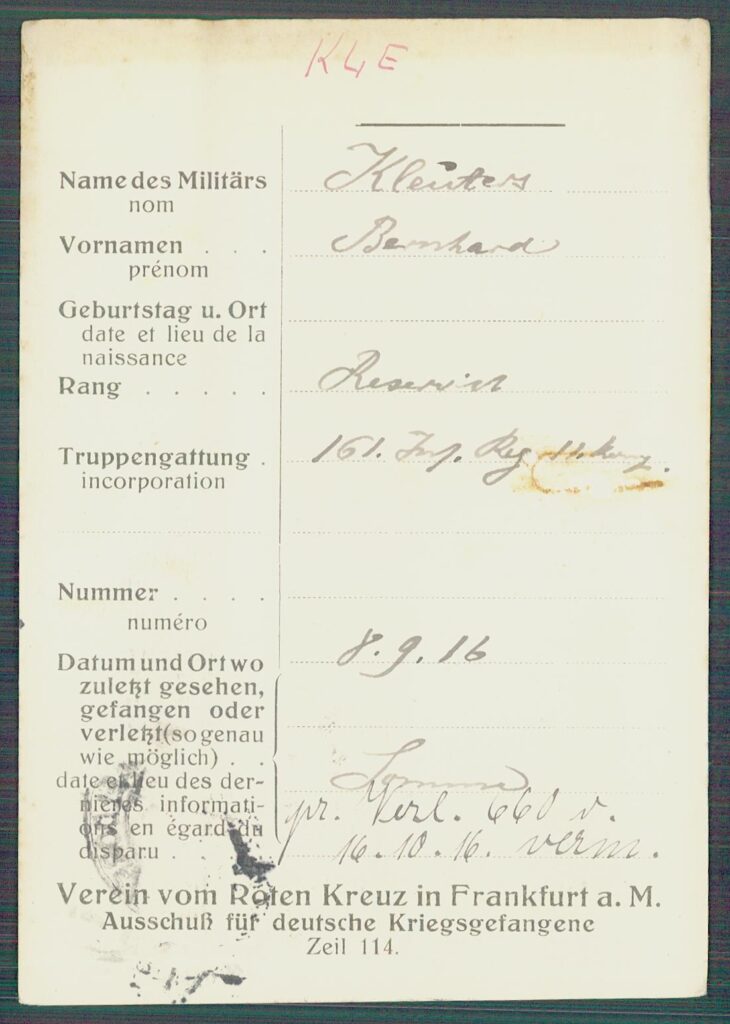 KLE
Name des Militärs Kleuters
nom
Vornamen . . . Bernhard
prénom
Geburtstag u. Ort
date et lieu de la
naissance
Rang . . . . . Reservist
Truppengattung . 161. Inf. Reg. 11. Komp.
incorporation
Nummer . . . .
numéro
8.9.16
Datum und Ort wo
zuletzt gesehen,
gefangen oder
verletzt (so genau
wie möglich) . .
date et lieu des der-
Somme
nières informati-
pr. Verl. 660 v.
ons en égard du
disparu . . . . 16.10.16. verm.
Verein vom Roten Kreuz in Frankfurt a. M.
Ausschuß für deutsche Kriegsgefangene
Zeil 114.